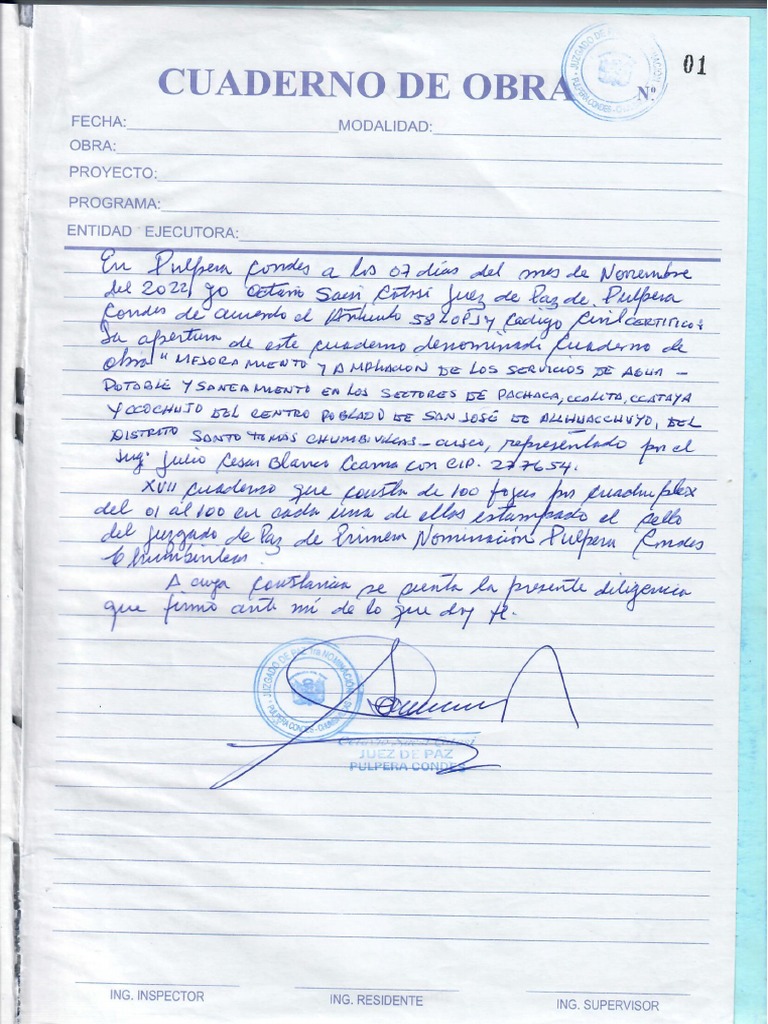 CUADERNO DE OBRA Nº 01
FECHA: MODALIDAD:
OBRA:
PROYECTO:
PROGRAMA:
ENTIDAD EJECUTORA:
En Pulpera Condes a los 07 días del mes de Noviembre
del 2022, yo Octavio Saysi Cotosi Juez de Paz de Pulpera
Condes de acuerdo el Artículo 58 LOPJ y Codigo Civil CERTIFICO:
La apertura de este cuaderno denominado Cuaderno de
obra "MEJORAMIENTO Y AMPLIACION DE LOS SERVICIOS DE AGUA -
POTABLE Y SANEAMIENTO EN LOS SECTORES DE PACHACA, CCALITA, CCATAYA
Y CCOCHUJO DEL CENTRO POBLADO DE SAN JOSÉ DE ALLHUACCHUYO, DEL
DISTRITO SANTO TOMAS CHUMBIVILCAS - CUSCO, representado por el
Ing. Julio Cesar Blanco Ccama con CIP. 277654.
XVII cuaderno que consta de 100 fojas por cuadruplex
del 01 al 100 en cada una de ellas estampado el sello
del juzgado de Paz de Primera Nominación Pulpera Condes
Chumbivilcas.
A cuya constancia se sienta la presente diligencia
que firmo ante mí de lo que doy fe.
JUZGADO DE PAZ 1ra NOMINACIÓN
PULPERA CONDES
JUEZ DE PAZ
PULPERA CONDES
ING. INSPECTOR ING. RESIDENTE ING. SUPERVISOR